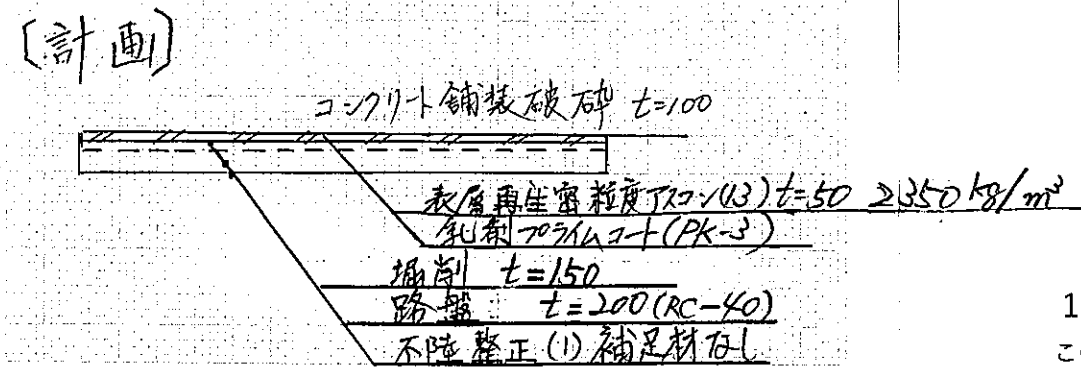 〔計画〕
コンクリート舗装破砕 t=100
表層再生密粒度アスコン(13) t=50 2350kg/m³
乳剤プライムコート(PK-3)
掘削 t=150
路盤 t=200(RC-40)
不陸整正(1)補足材なし
1
こ